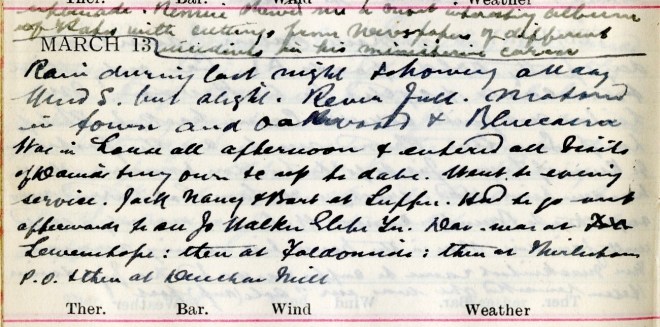 Ther. Bar. Wind Weather
esplanade. Rennie shewed me a most interesting album
of with cuttings from Newspapers of different
MARCH 13 incidents in his ministerial career
Rain during last night & showery all day
Wind S. but slight. River full. Motored
in town and Oakwood & Bluecairn
Was in house all afternoon & entered all visits
of up to date. Went to evening
service. Jack Nancy & Bart at Supper. Had to go out
afterwards to see Jo Walker Glebe Tn. Dau. was at
Lewenshope: then at: then at
P.O. & then at Deuchar Mill
Ther. Bar. Wind Weather